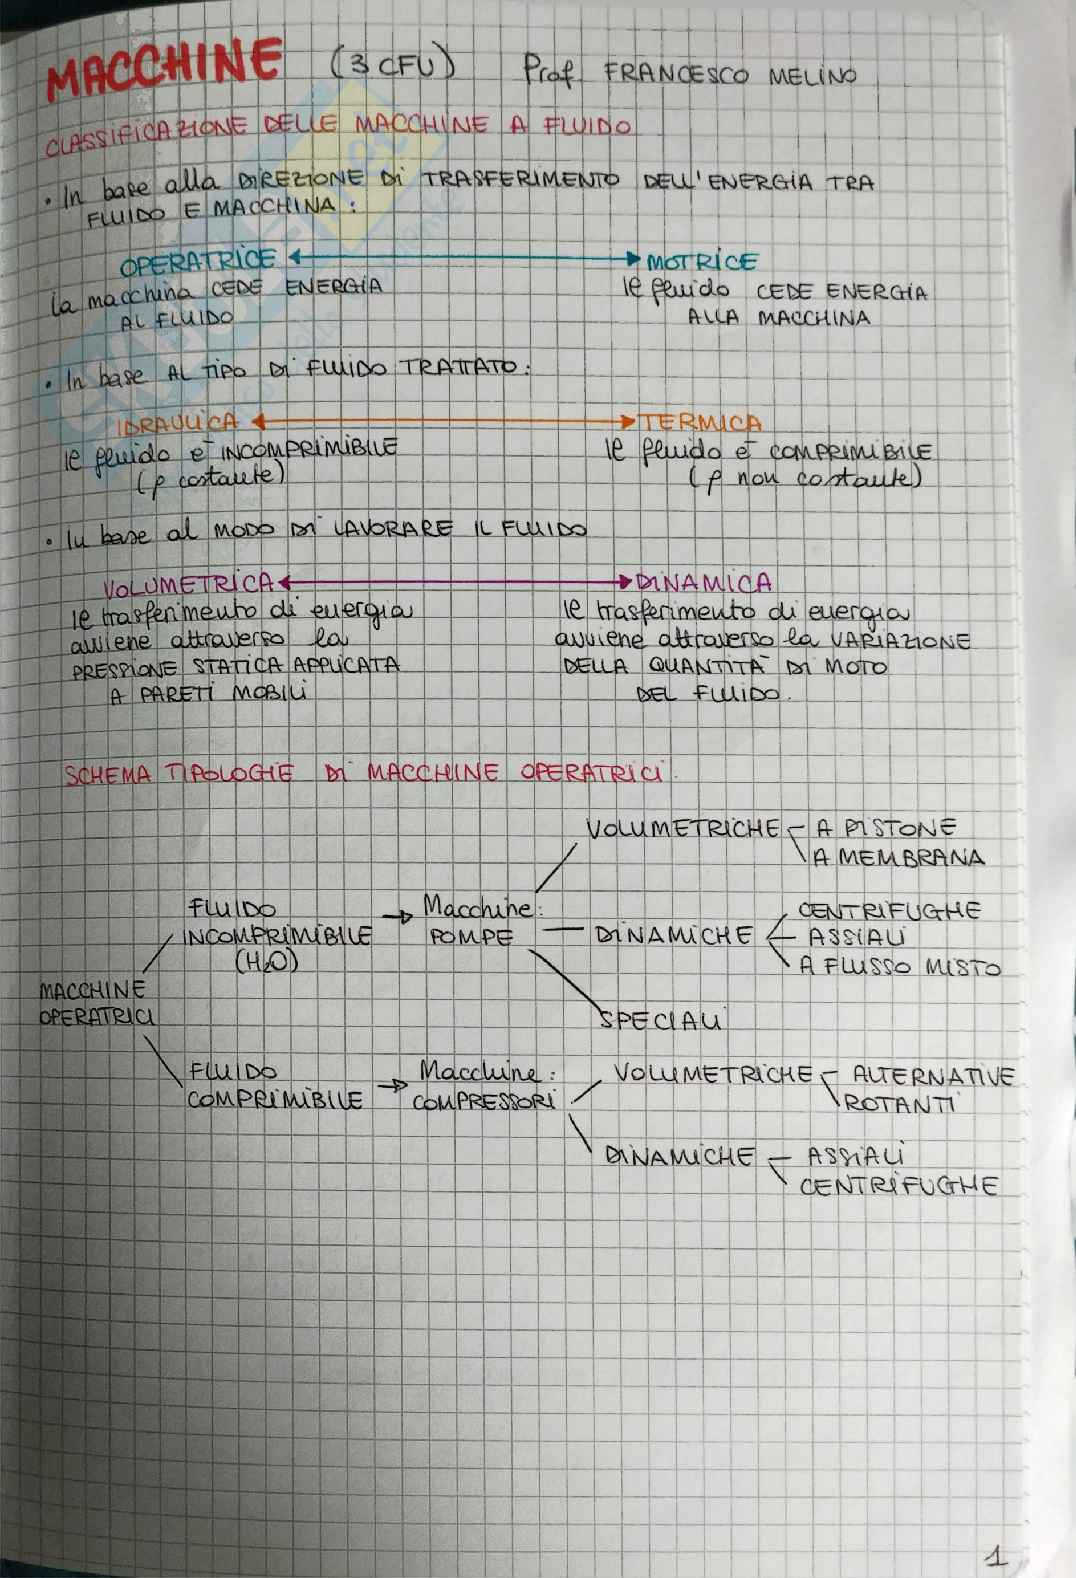 MACCHINE (3 CFU) Prof FRANCESCO MELINO
CLASSIFICAZIONE DELLE MACCHINE A FLUIDO
• In base alla DIREZIONE DI TRASFERIMENTO DELL'ENERGIA TRA
FLUIDO E MACCHINA:
OPERATRICE ↔ MOTRICE
la macchina CEDE ENERGIA
AL FLUIDO
il fluido CEDE ENERGIA
ALLA MACCHINA
• In base AL TIPO DI FLUIDO TRATTATO:
IDRAULICA ↔ TERMICA
il fluido è INCOMPRIMIBILE
(ρ costante)
il fluido è COMPRIMIBILE
(ρ non costante)
• In base al MODO DI LAVORARE IL FLUIDO
VOLUMETRICA ↔ DINAMICA
il trasferimento di energia
avviene attraverso la
PRESSIONE STATICA APPLICATA
A PARETI MOBILI
il trasferimento di energia
avviene attraverso la VARIAZIONE
DELLA QUANTITÀ DI MOTO
DEL FLUIDO.
SCHEMA TIPOLOGIE DI MACCHINE OPERATRICI.
MACCHINE
OPERATRICI
FLUIDO
INCOMPRIMIBILE
(H2O)
→ Macchine:
POMPE
VOLUMETRICHE
A PISTONE
A MEMBRANA
DINAMICHE
CENTRIFUGHE
ASSIALI
A FLUSSO MISTO
SPECIALI
FLUIDO
COMPRIMIBILE
→ Macchine:
COMPRESSORI
VOLUMETRICHE
ALTERNATIVE
ROTANTI
DINAMICHE
ASSIALI
CENTRIFUGHE
1